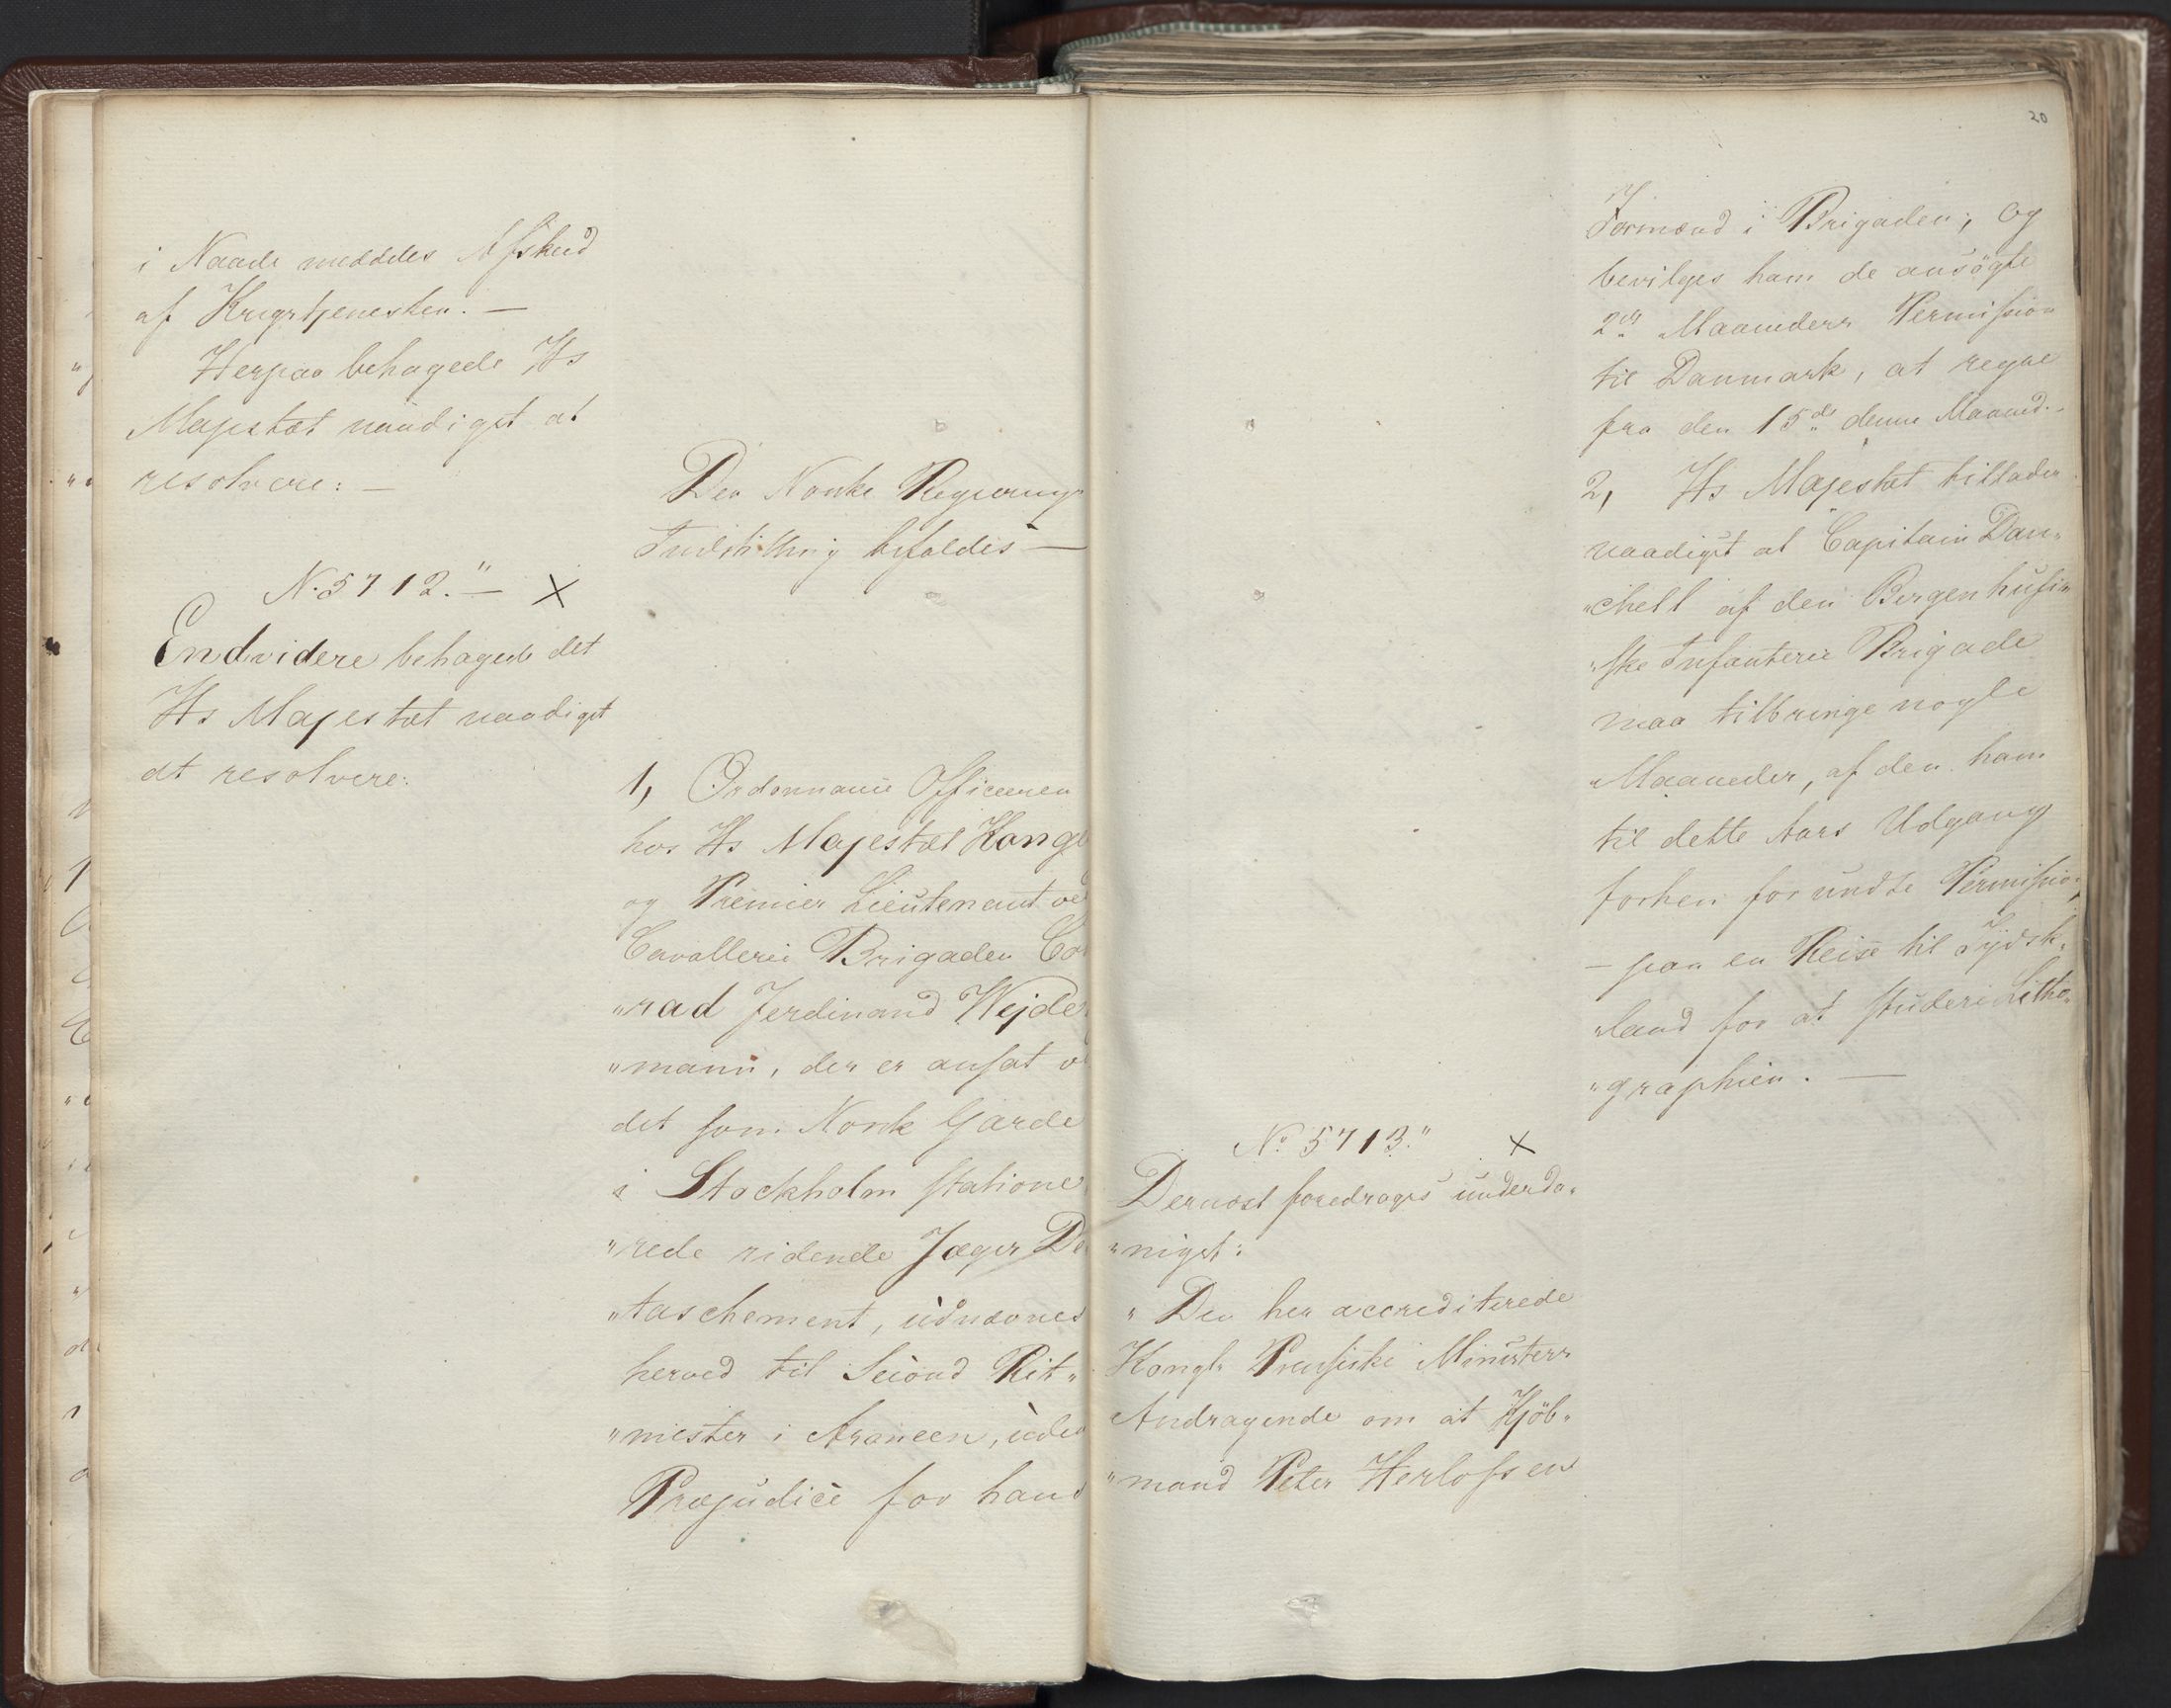 i Naade meddeles Afskeed
af Krigstjenesten. —
Herpaa behagede Hs
Majestæt naadigst at
resolvere: —
Den Norske Regjerings
Indstilling bifaldes —
N. 5712." — X
Endvidere behagede det
Hs Majestæt naadigst
at resolvere:
1, Ordonnance Officeren
hos Hs Majestæt Kongen
og Premier Lieutenant ved
Cavallerie Brigaden Con
"rad Ferdinand Wejde
"mann, der er ansat v
det som Norsk Garde
i Stockholm statione
"rede ridende Jæger De
"taschement, udnævnes
herved til Second Rit"
"mester i Armeen, uden
Præjudice for hans
20
Formænd i Brigaden, og
bevilges ham de ansøgte
2de Maaneders Permission
til Danmark, at regne
fra den 15de denne Maaned. -
2, Hs Majestæt tillader
naadigst at Capitain Dan"
"chell af den Bergenhusi"
"ske Infanterie Brigade
maa tilbringe nogle
Maaneder, af den ham
til dette Aars Udgang
forhen forundte Permission,
— paa en Reise til Tydsk"
"land for at studere Litho"
"graphien. —
No 5713." X
Dernæst foredroges underda"
"nigst:
" Den her accrediterede
Kongl. Preussiske Ministers
Andragende om at Kjøb"
"mand Peter Herlofsen